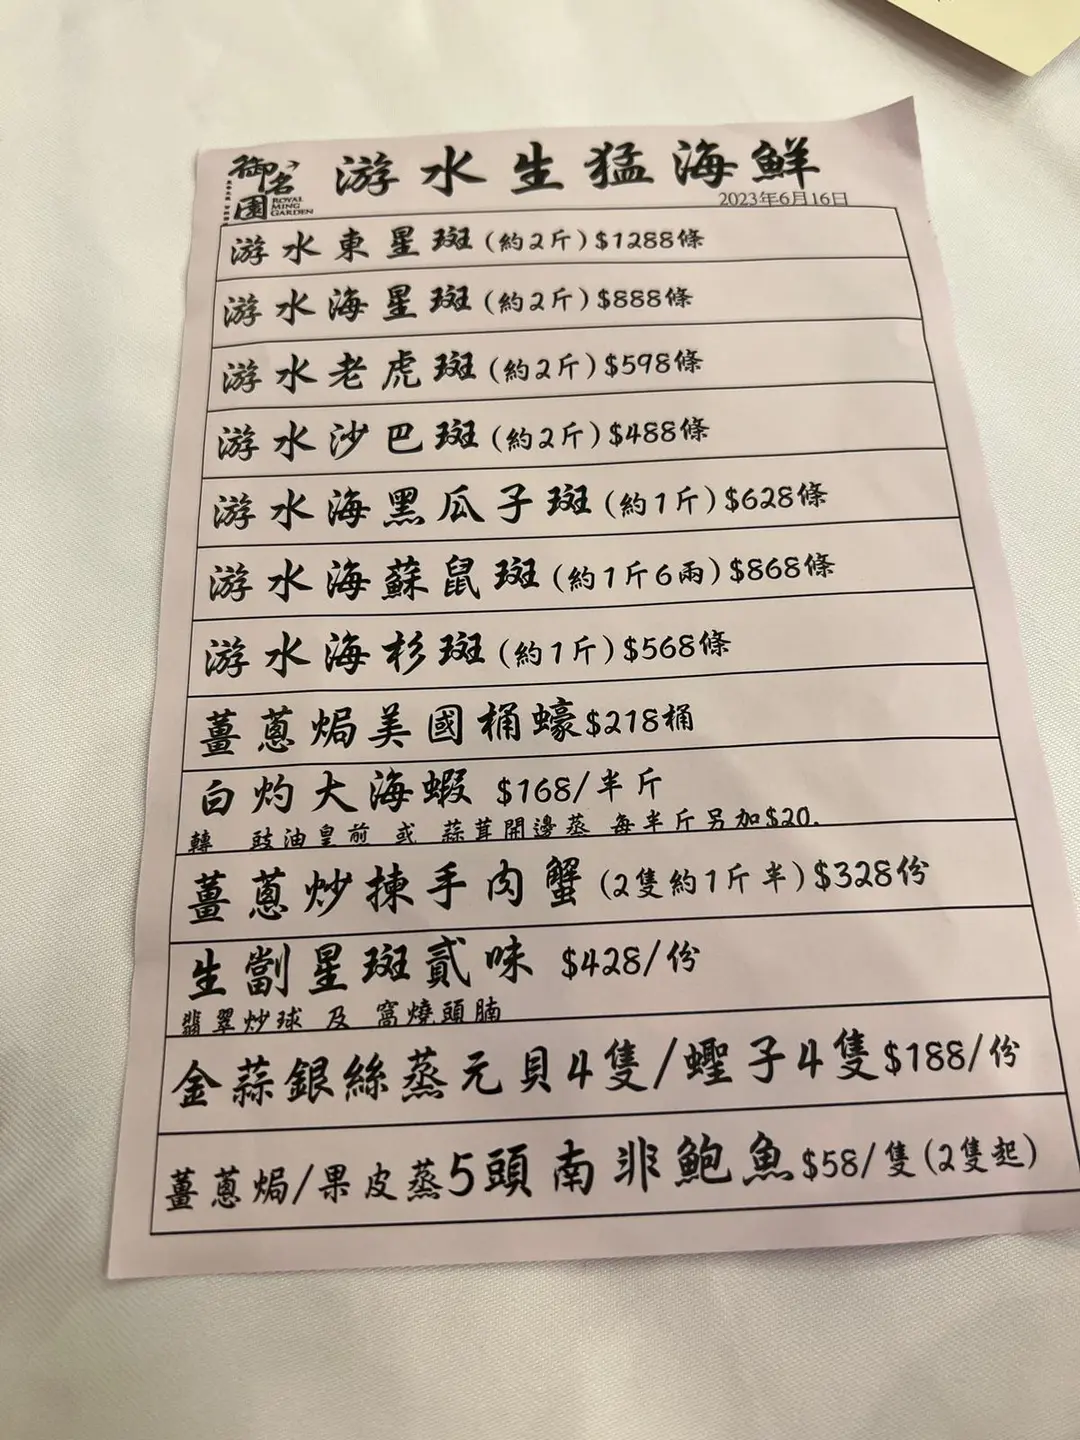 御名園
ROYAL
MING
GARDEN
游水生猛海鮮
2023年6月16日
游水東星斑(約2斤)$1288條
游水海星斑(約2斤)$888條
游水老虎斑(約2斤)$598條
游水沙巴斑(約2斤)$488條
游水海黑瓜子斑(約1斤)$628條
游水海蘇鼠斑(約1斤6兩)$868條
游水海杉斑(約1斤)$568條
薑蔥焗美國桶蠔$218桶
白灼大海蝦 $168/半斤
轉 豉油皇煎 或 蒜茸開邊蒸 每半斤另加$20.
薑蔥炒揀手肉蟹(2隻約1斤半)$328份
生劏星斑貳味 $428/份
翡翠炒球 及 窩燒頭腩
金蒜銀絲蒸元貝4隻/蟶子4隻$188/份
薑蔥焗/果皮蒸5頭南非鮑魚$58/隻(2隻起)